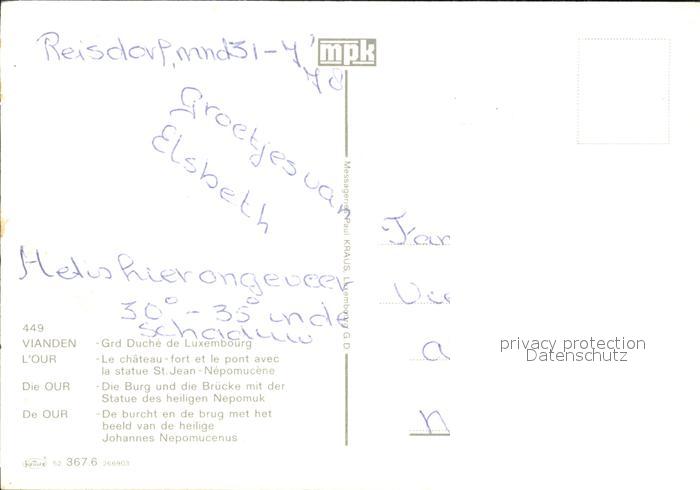 Reisdorf, mnd 31-7'
78
mpk
Groetjes van
Elsbeth
Het is hier ongeveer
30° - 35° in de
schaduw
Messageries Paul KRAUS, Luxembourg G D
449
VIANDEN - Grd Duché de Luxembourg
L'OUR - Le château-fort et le pont avec
la statue St. Jean-Népomucène
Die OUR - Die Burg und die Brücke mit der
Statue des heiligen Nepomuk
De OUR - De burcht en de brug met het
beeld van de heilige
Johannes Nepomucenus
52 367.6 266903
privacy protection
Datenschutz